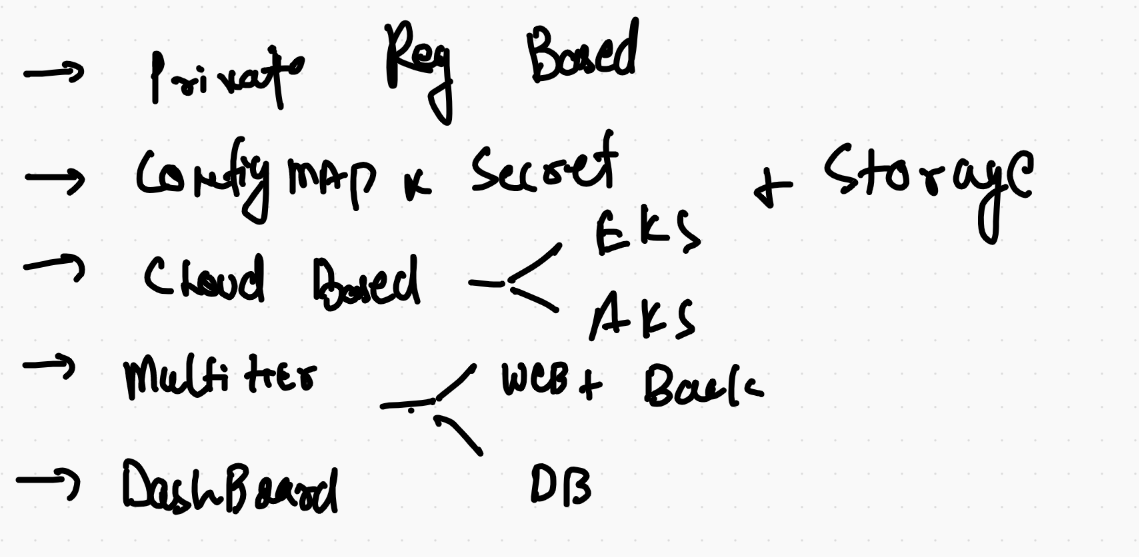 → Private Reg Based
→ Config MAP & Secret + Storage
→ Cloud Based
EKS
AKS
→ Multi tier
WEB + Back
DB
→ DashBoard